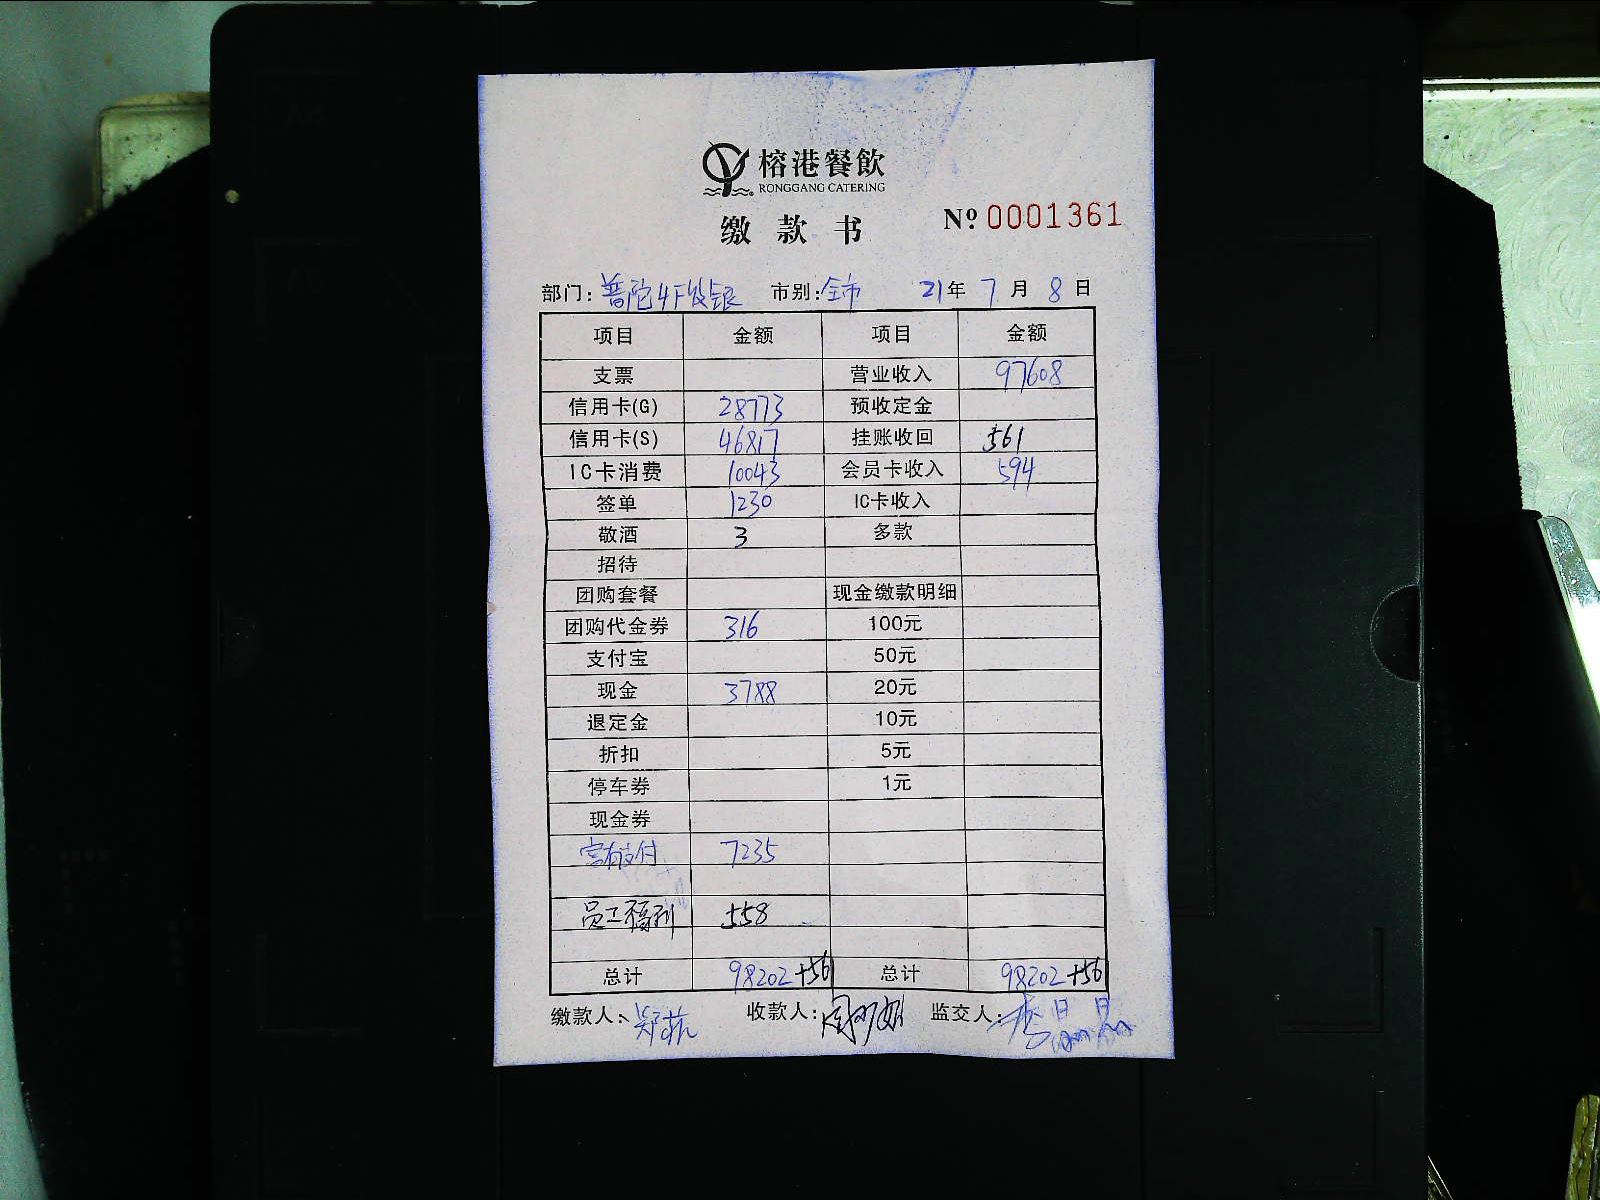 榕港餐飲
RONGGANG CATERING
缴款书 Nº 0001361
部门：普陀4F收银 市别：全市 21年 7月 8日
项目 金额 项目 金额
支票 营业收入 97608
信用卡(G) 28773 预收定金
信用卡(S) 46817 挂账收回 561
IC卡消费 10043 会员卡收入 594
签单 1230 IC卡收入
敬酒 3 多款
招待
团购套餐 现金缴款明细
团购代金券 316 100元
支付宝 50元
现金 3788 20元
退定金 10元
折扣 5元
停车券 1元
现金券
7235
员工福利 558
总计 98202+56 总计 98202+56
缴款人： 收款人： 监交人：